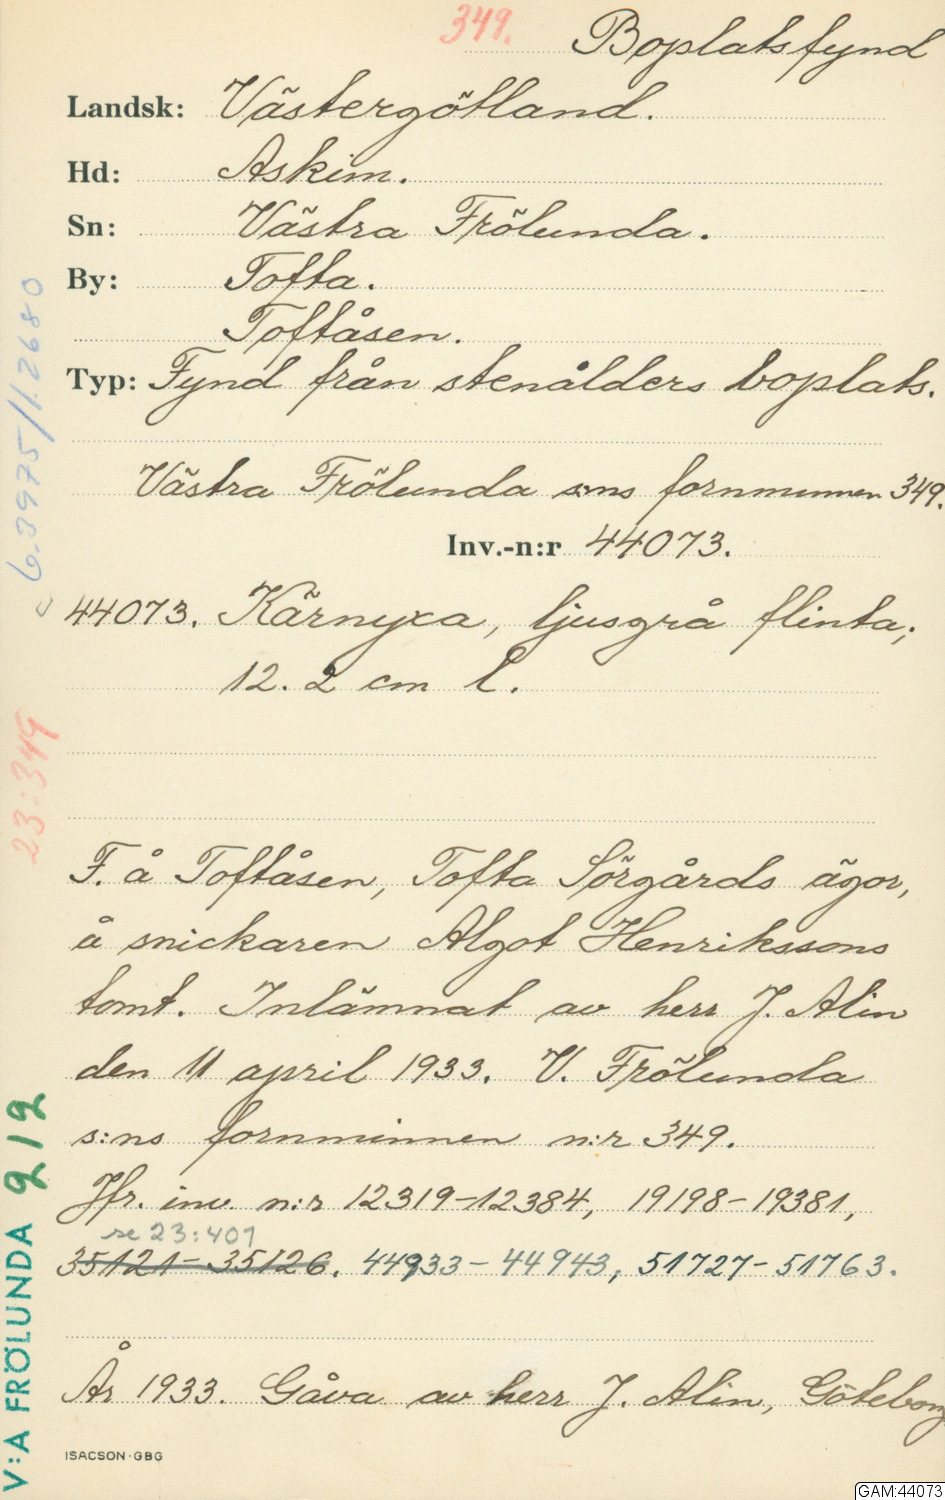 349.
Boplatsfynd
Landsk: Västergötland.
Hd: Askim.
Sn: Västra Frölunda.
By: Tofta.
Toftåsen.
Typ: Fynd från stenålders boplats.
Västra Frölunda s:ns fornminnen 349.
Inv.-n:r 44073.
44073. Kärnyxa, ljusgrå flinta;
12.2 cm l.
F. å Toftåsen, Tofta Sörgårds ägor,
å snickaren Algot Henrikssons
tomt. Inlämnat av herr J. Alin
den 11 april 1933. V. Frölunda
s:ns fornminnen n:r 349.
Jfr. inv. n:r 12319-12384, 19198-19381,
se 23:401
35121-35126. 44933-44943, 51727-51763.
År 1933. Gåva av herr J. Alin, Göteborg
ISACSON·GBG
6.3975/1.2680
23:349
V:A FRÖLUNDA 212
GAM:44073